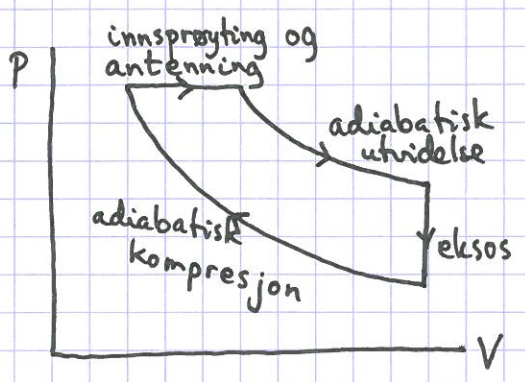 innsprøyting og
antenning
P
adiabatisk
utvidelse
adiabatisk
kompresjon
eksos
V